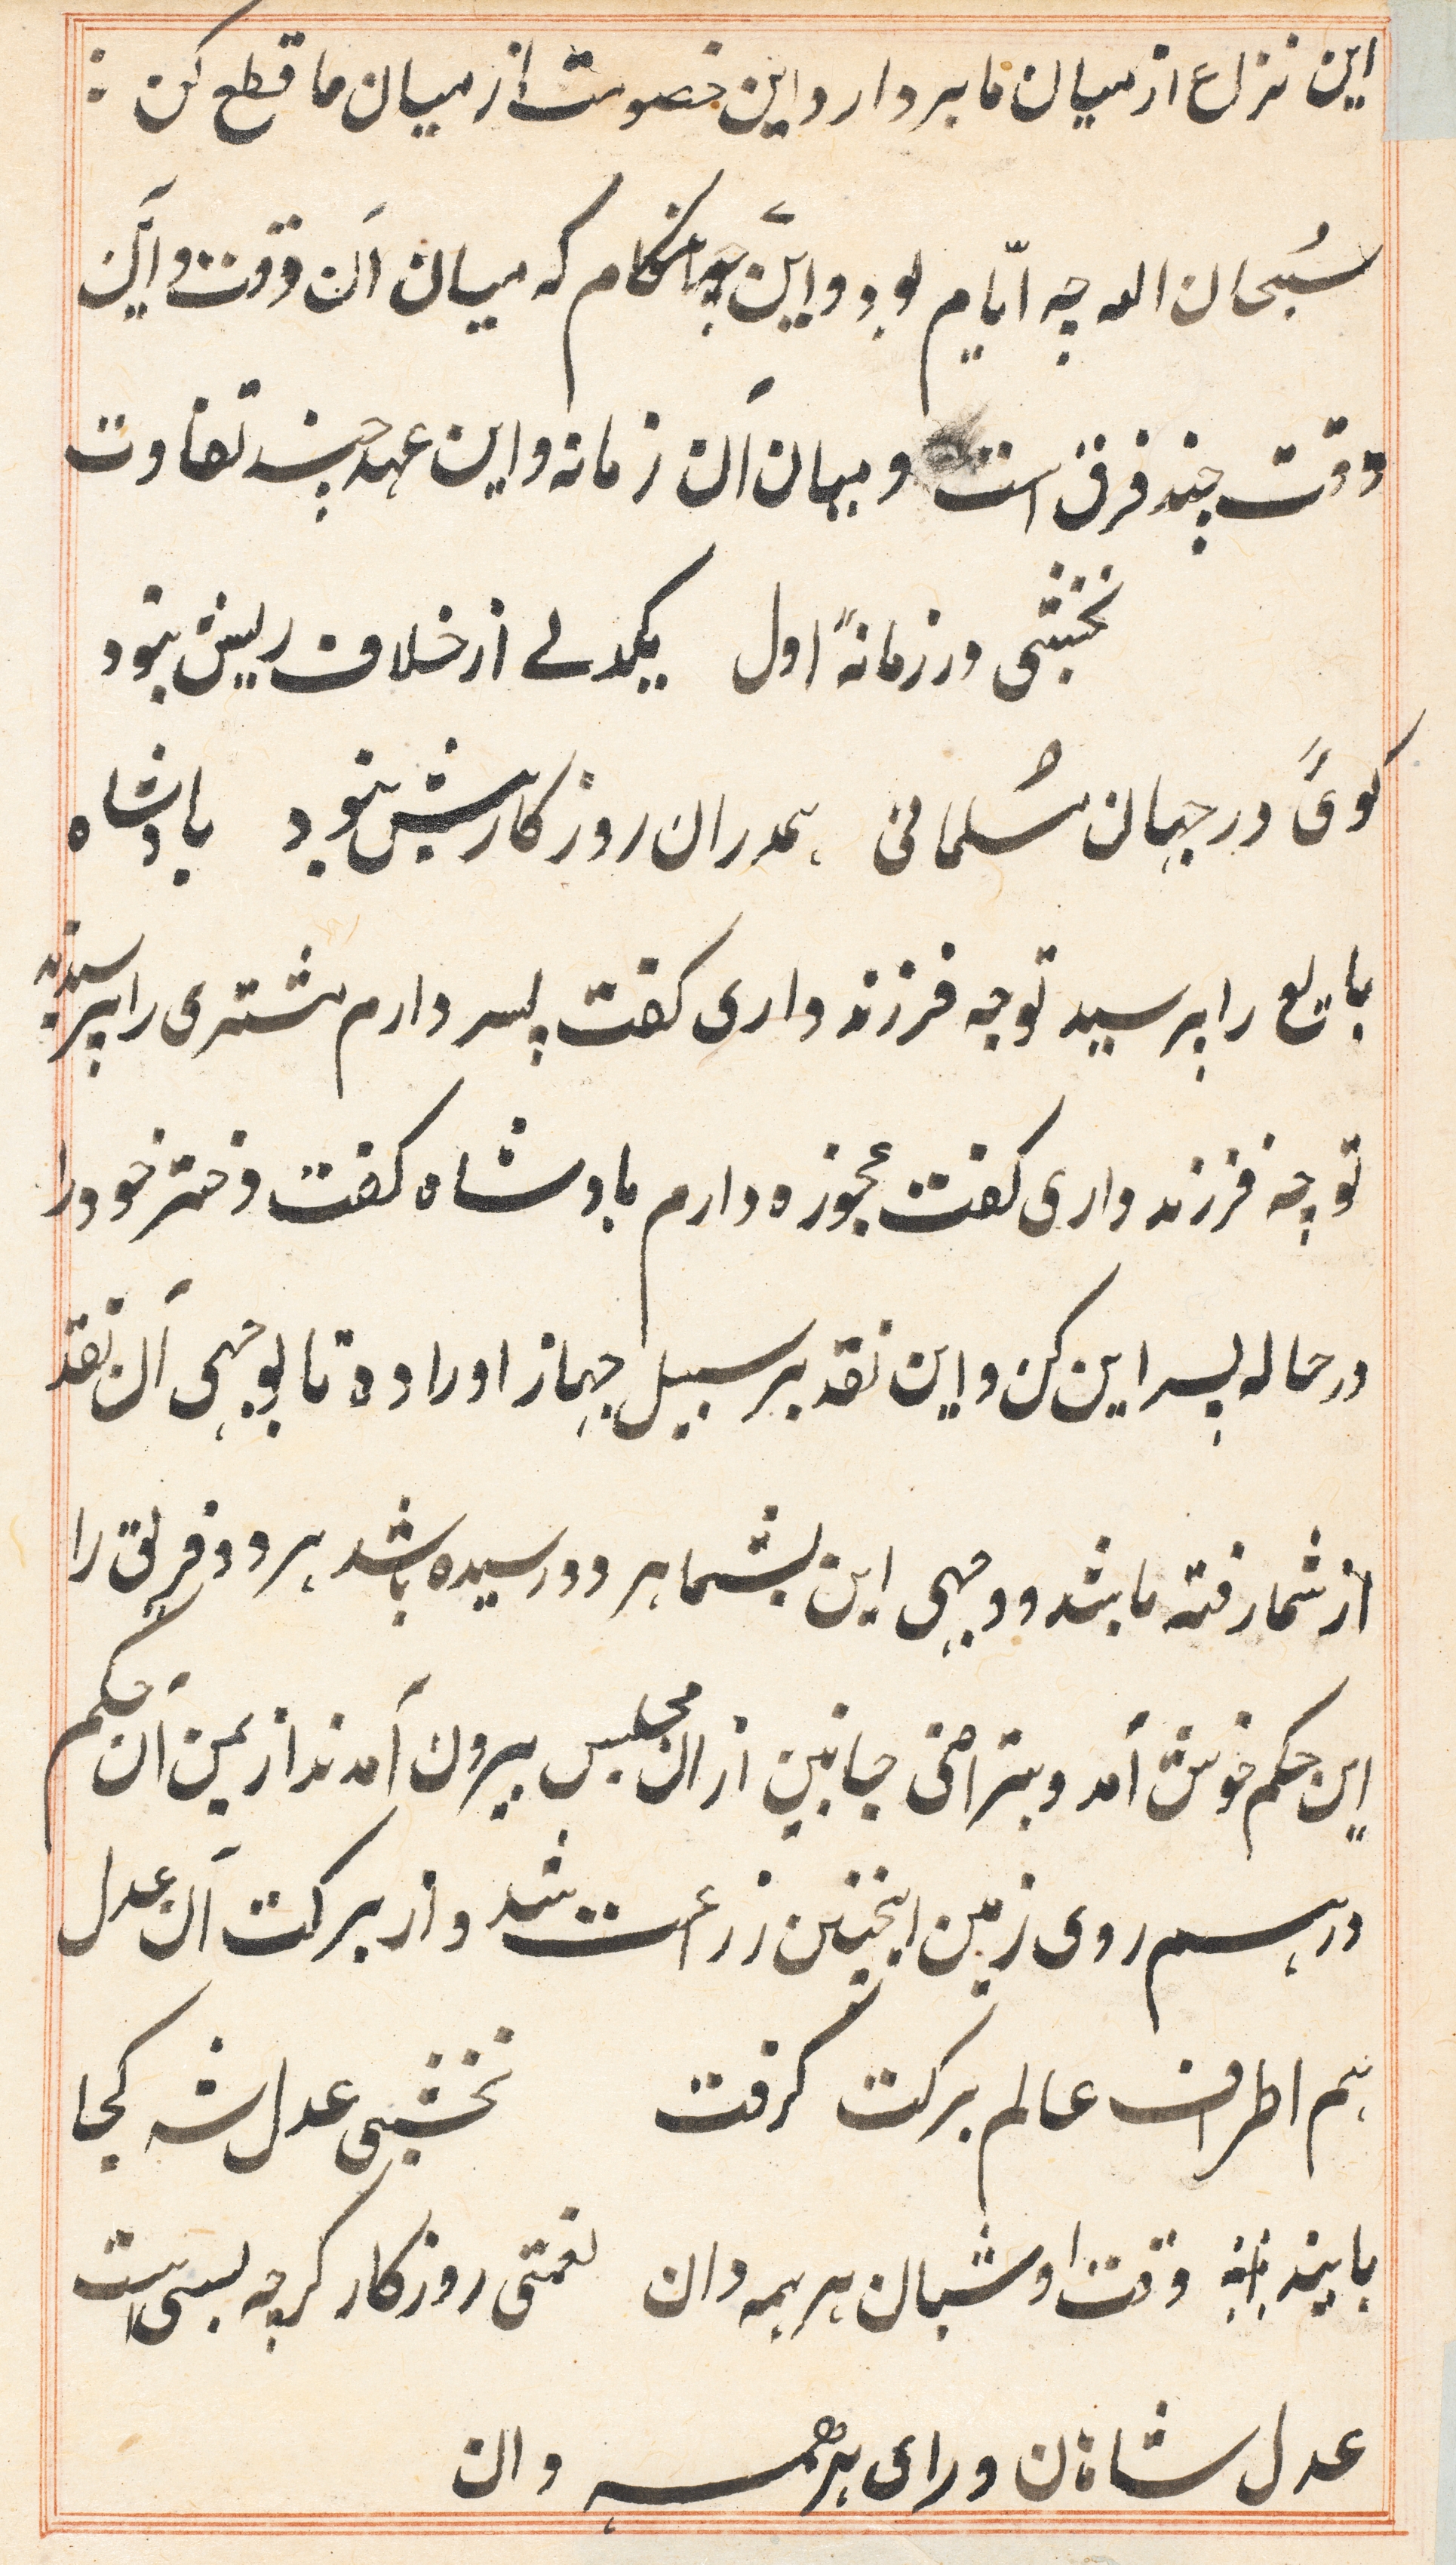 این نزاع از میان ما بردار و این خصومت از میان ما قطع کن :
سُبحان الله چه ایّام بود و این چه هنکام که میان آن وقت و این
وقت چند فرق است و میان آن زمانه و این عهد چند تفاوت
نخشبی در زمانهٔ اول یکدلے از خلاف ریش نبود
کوئ در جهان مُسلمانی همدران روزکار بیش نبود بادشاه
بایع را پرسید تو چه فرزند داری کفت پسر دارم مشتری را پرسیدند
تو چه فرزند داری کفت عجوزه دارم بادشاه کفت دختر خود را
در حاله پسر این کن و این نقد بر سبیل جهاز او را ده تا بوجهی آن نقد
از شما رفته باشد و وجهی این بشما هر دو رسیده باشد هر دو فریق را
این حکم خوش آمد و بتراضی جانبین از ان مجلس بیرون آمدند از یمن آن حکم
در همه روی زمین اینچنین زراعت شد و از برکت آن عدل
هم اطراف عالم برکت کرفت نخشبی عدل شه کجا
یابند وقت او شبان هر همه دان نعمتی روزکار کرچه بسی است
عدل شاهان ورای هر همه دان